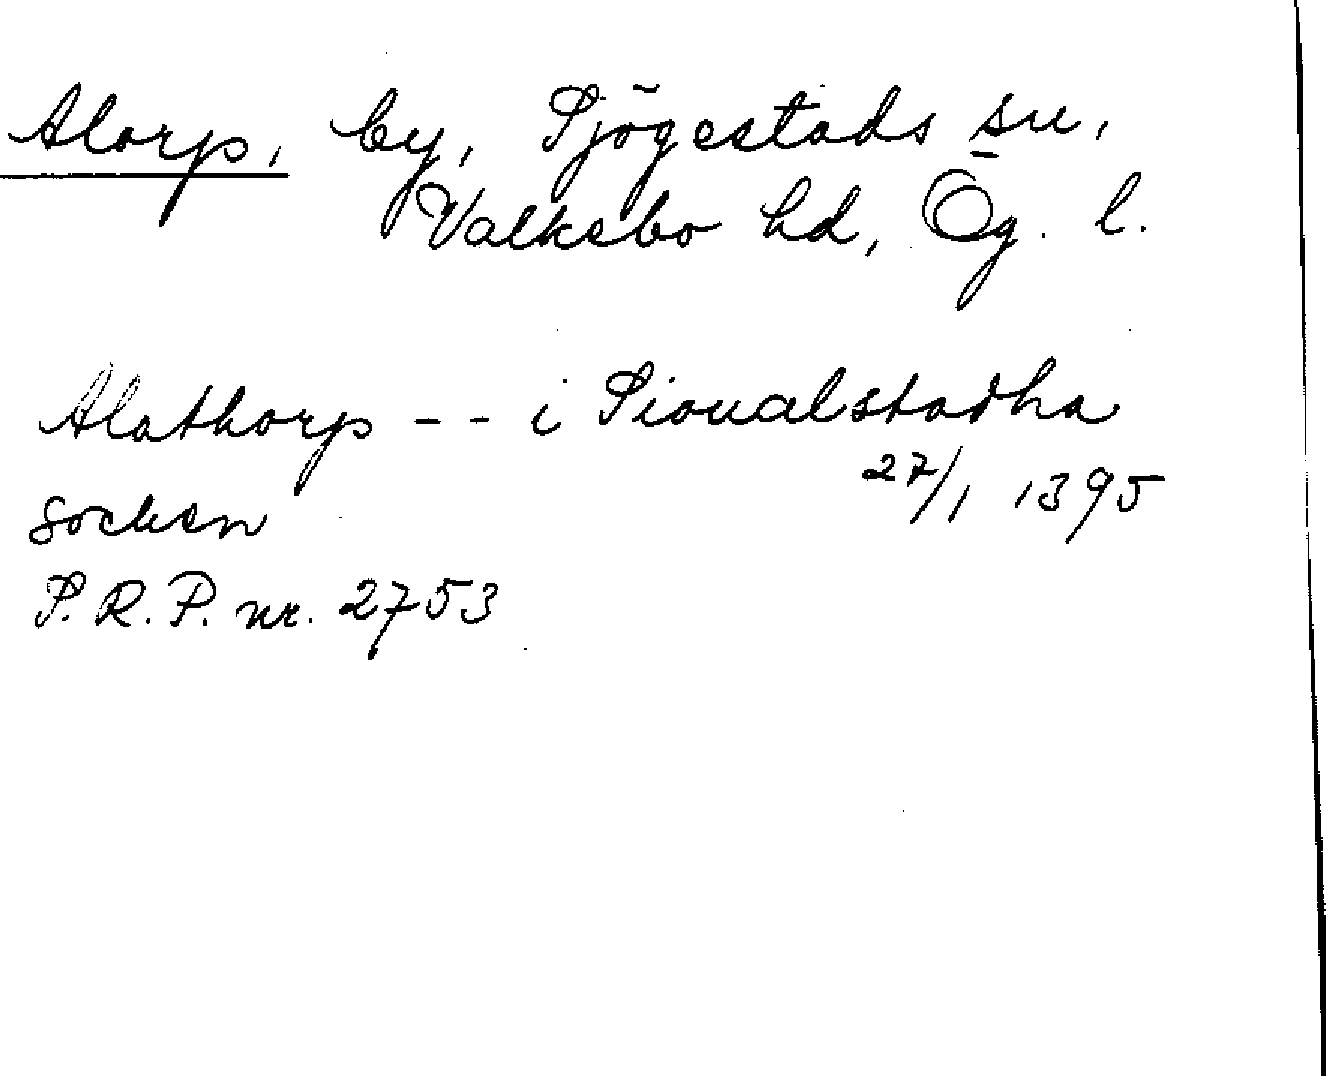 Alorp, by, Sjögestads sn,
Valkebo hd, Ög. l.
Alathorp -- i Sioualstadha
27/1 1395
socken
S.R.P. nr. 2753